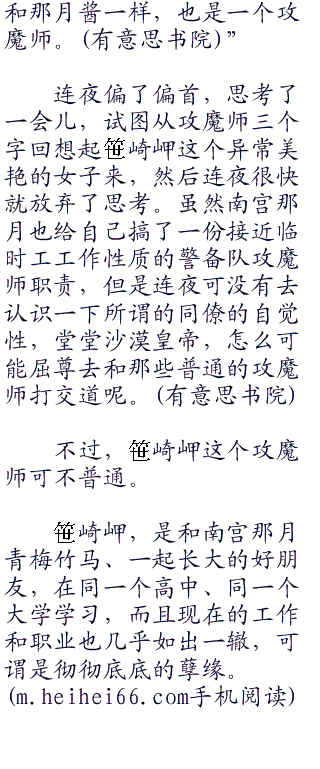 和那月酱一样，也是一个攻
魔师。(有意思书院)”
连夜偏了偏首，思考了
一会儿，试图从攻魔师三个
字回想起笹崎岬这个异常美
艳的女子来，然后连夜很快
就放弃了思考。虽然南宫那
月也给自己搞了一份接近临
时工工作性质的警备队攻魔
师职责，但是连夜可没有去
认识一下所谓的同僚的自觉
性，堂堂沙漠皇帝，怎么可
能屈尊去和那些普通的攻魔
师打交道呢。(有意思书院)
不过，笹崎岬这个攻魔
师可不普通。
笹崎岬，是和南宫那月
青梅竹马、一起长大的好朋
友，在同一个高中、同一个
大学学习，而且现在的工作
和职业也几乎如出一辙，可
谓是彻彻底底的孽缘。
(m.heihei66.com手机阅读)